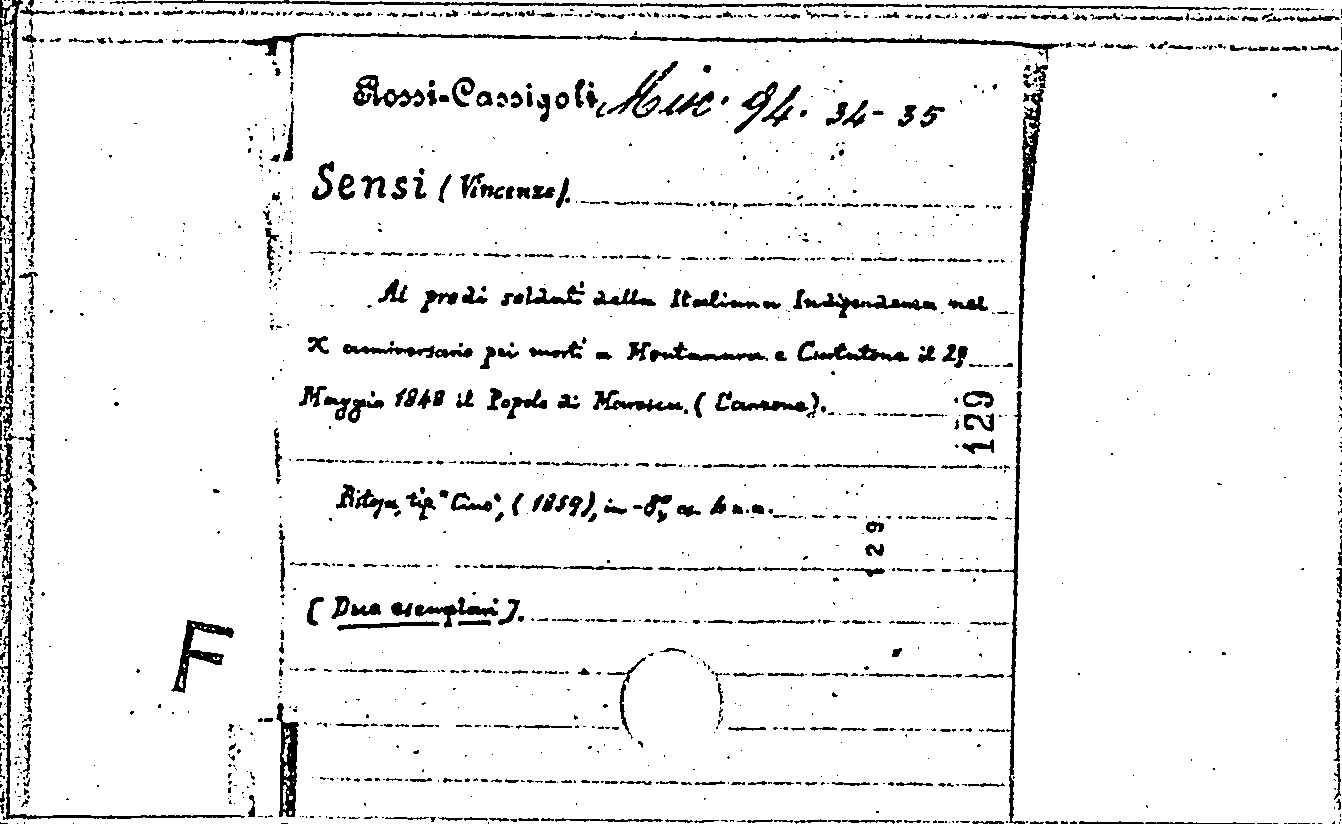 Rossi-Cassigoli, Misc. 94. 34-35
Sensi (Vincenzo).
Ai prodi soldati della Italiana Indipendenza nel
X anniversario pei morti a Montanara e Curtatone il 29
Maggio 1848 il Popolo di Maresca. (Canzone).
129
Pistoja, tip. "Cino", (1859), in-8º,
129
[Due esemplari].
F